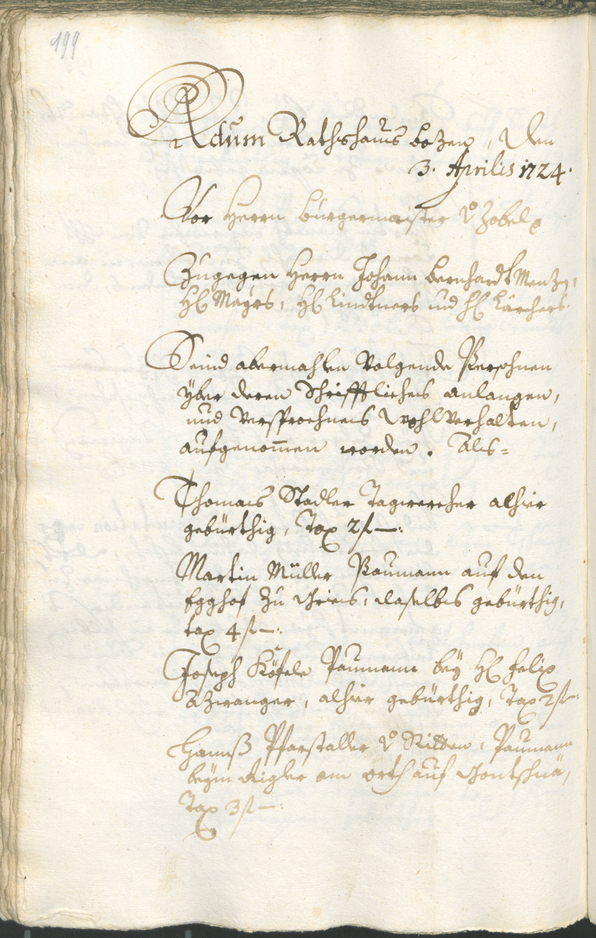 199
Actum Rathshaus Bozen, den
3. Aprilis 1724.
Vor Herrn Bürgermaister v Zobel
Zugegen Herrn Johann Bernhardt Menz,
H: Mayrs, H: Lindtners und H: Kärchers.
Seind abermahlen Volgende Persohnen
yber deren Schrifftliches anlangen,
und Versprochnes Wohlverhalten,
aufgenommen worden. Als=
Thomas Stadler Tagwercher alhier
gebürthig, Tax 2 f —:
Martin Müller Paumann auf den
Egghof zu Gries, daselbs gebürthig,
tax 4 f —:
Joseph Köfele Paumann bey H: Felix
Azwanger, alhier gebürthig, Tax 2 f —:
Hannß Pfarstaller v Ritten, Paumann
beym Aigler am orth auf
Tax 3 f —: